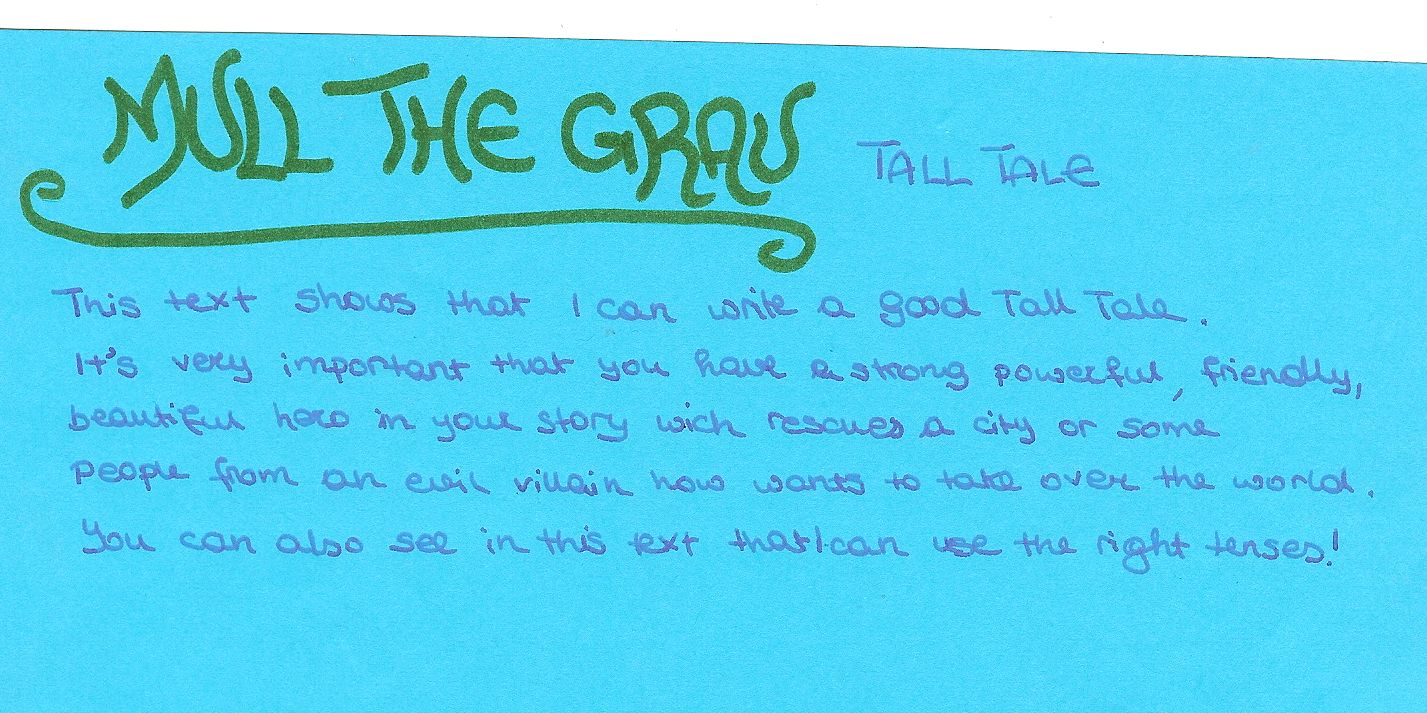 MULL THE GRAU TALL TALE
This text shows that I can write a good Tall Tale.
It's very important that you have a strong powerful, friendly,
beautiful hero in your story wich rescues a city or some
people from an evil villain how wants to take over the world.
You can also see in this text that I can use the right tenses!